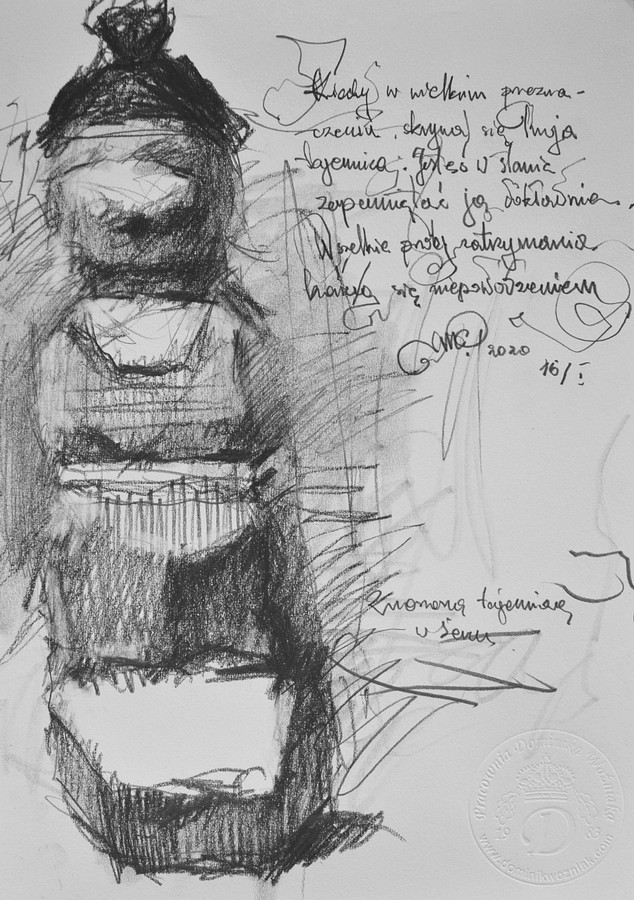 Kiedyś w wielkim przezna-
czeniu, skrywaj się Twoja
tajemnica. Jesteś w stanie
zapamiętać ją dokładnie.
Wszelkie próby zatrzymania
kończą się niepowodzeniem
2020
16/I
tajemnicą
Pracownia Dominika Woźniaka
1983
D
www.dominikwozniak.com